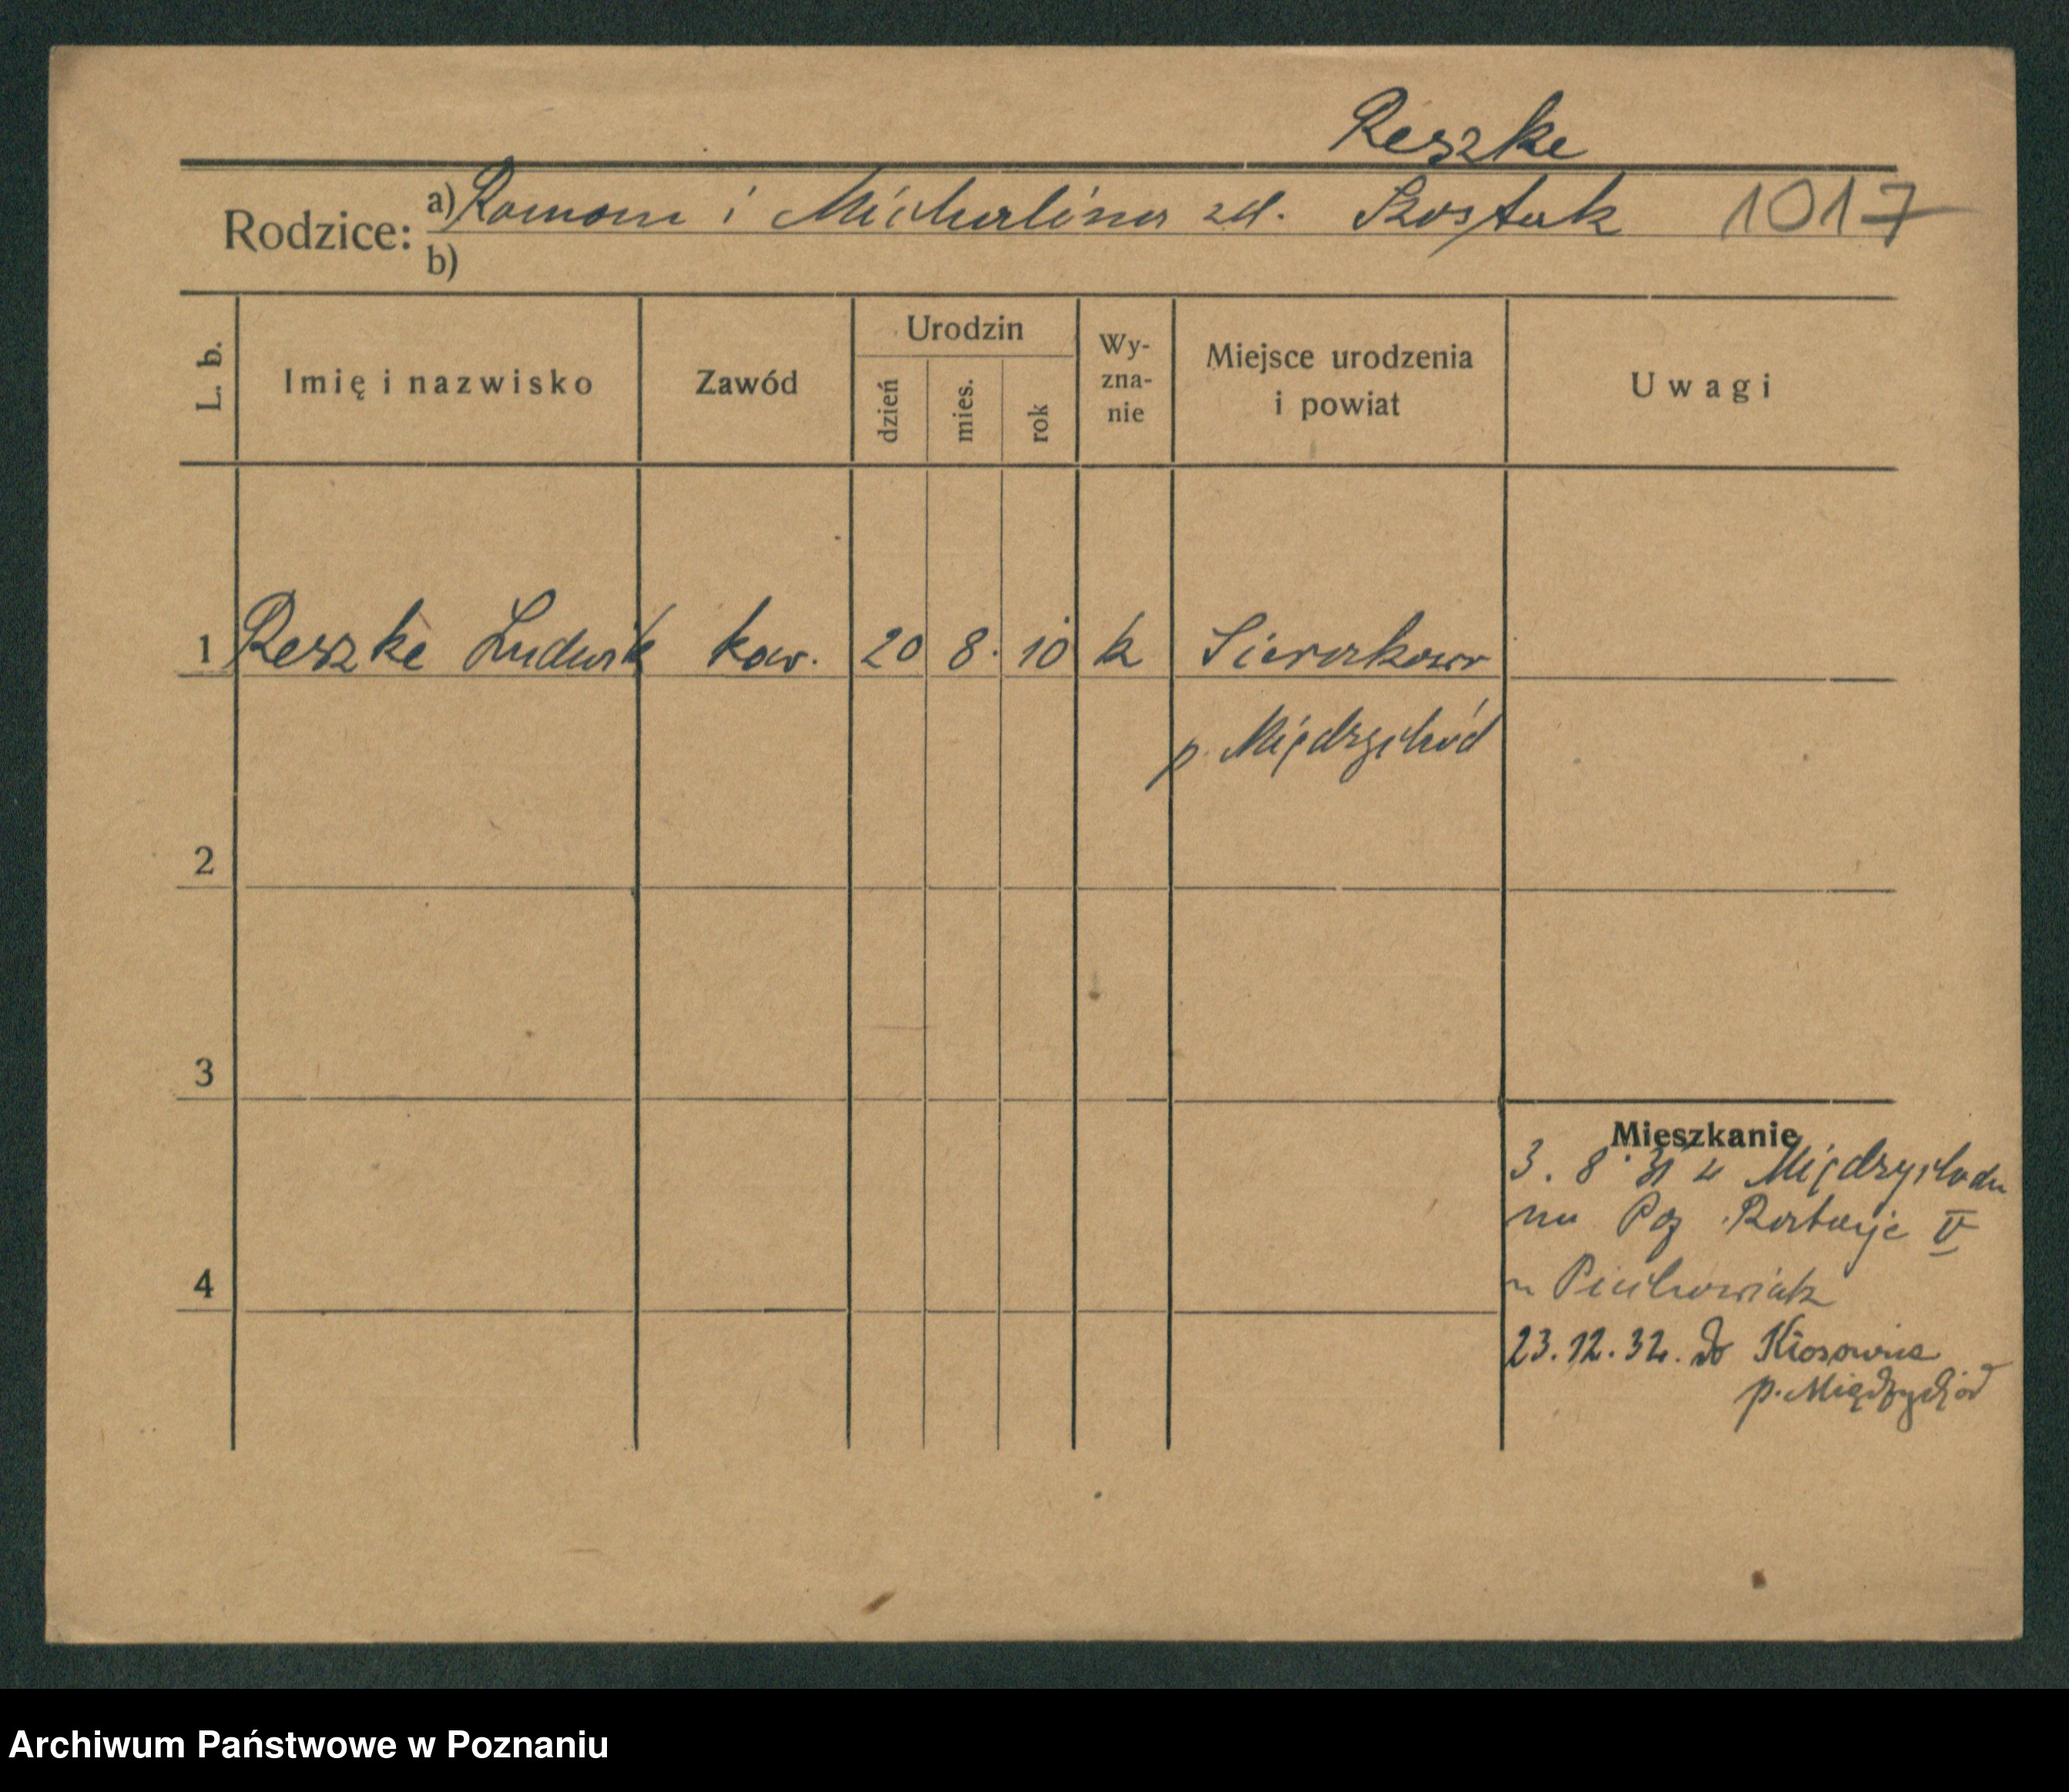 Reszke
Rodzice: a) Roman i Michalina zd. Szostak 1017
b)
L. b. Imię i nazwisko Zawód Urodzin dzień mies. rok Wy-zna-nie Miejsce urodzenia i powiat Uwagi
1 Reszke Ludwik kaw. 20 8. 10 k Sierakow
p. Międzychód
2
3
Mieszkanie
3. 8. 31 z Międzychodu
na Poz Rataje V
4
u Piechowiak
23.12.32. do Kłosowice
p. Międzychód
Archiwum Państwowe w Poznaniu